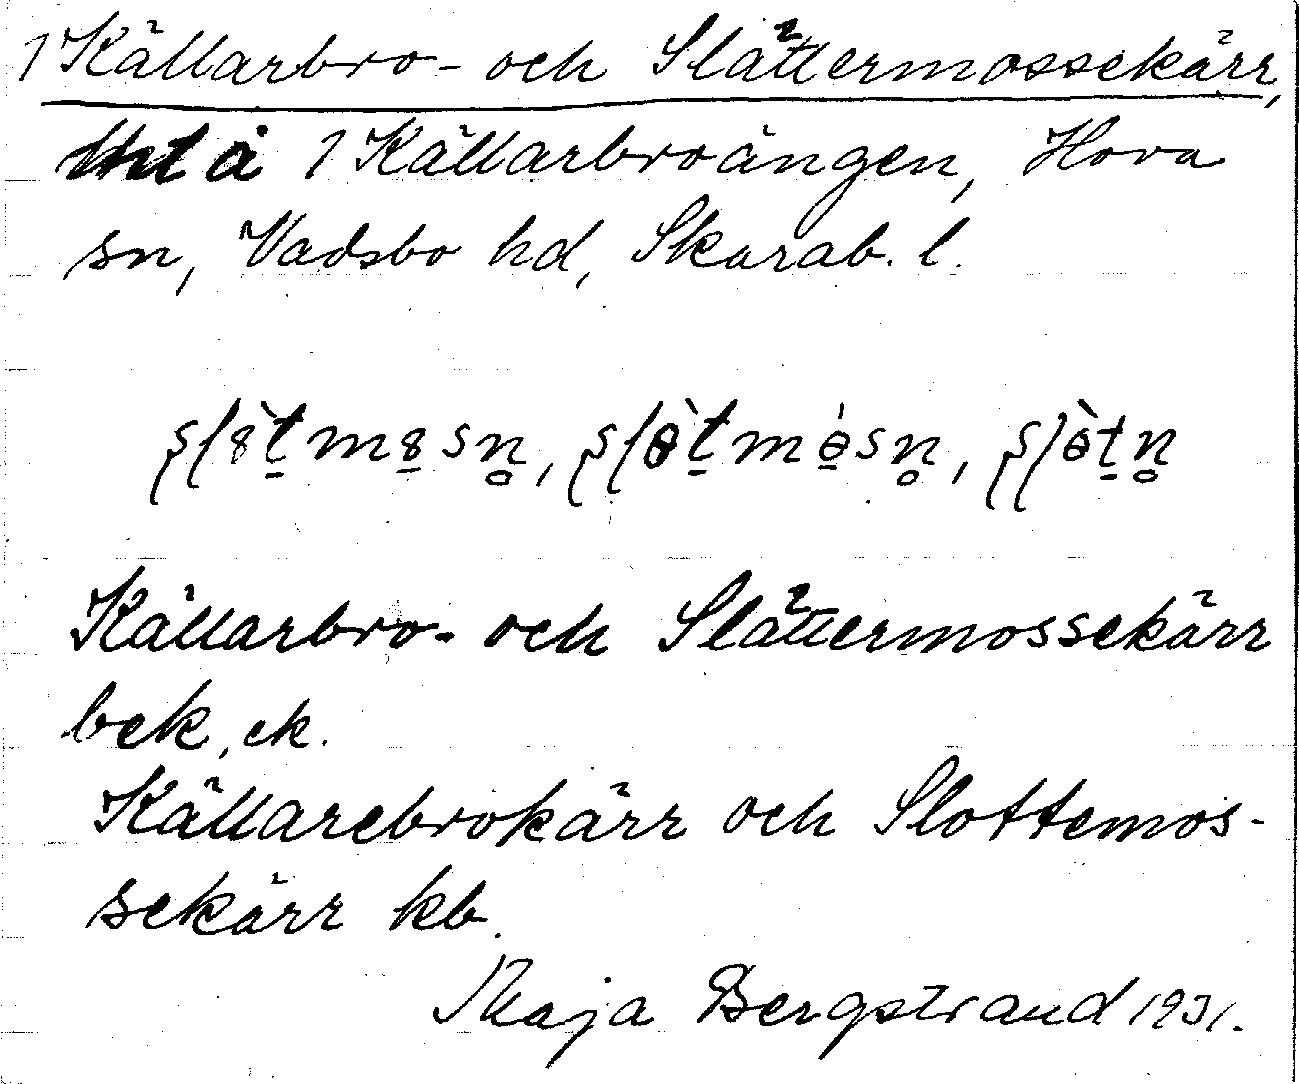 1 Källarbro- och Slättermossekärr,
å 1 Källarbroängen, Hova
sn, Vadsbo hd, Skarab. l.
Källarbro- och Slättermossekärr
bek, ek.
Källarebrokärr och Slottemos-
sekärr kb.
Maja Bergstrand 1931.